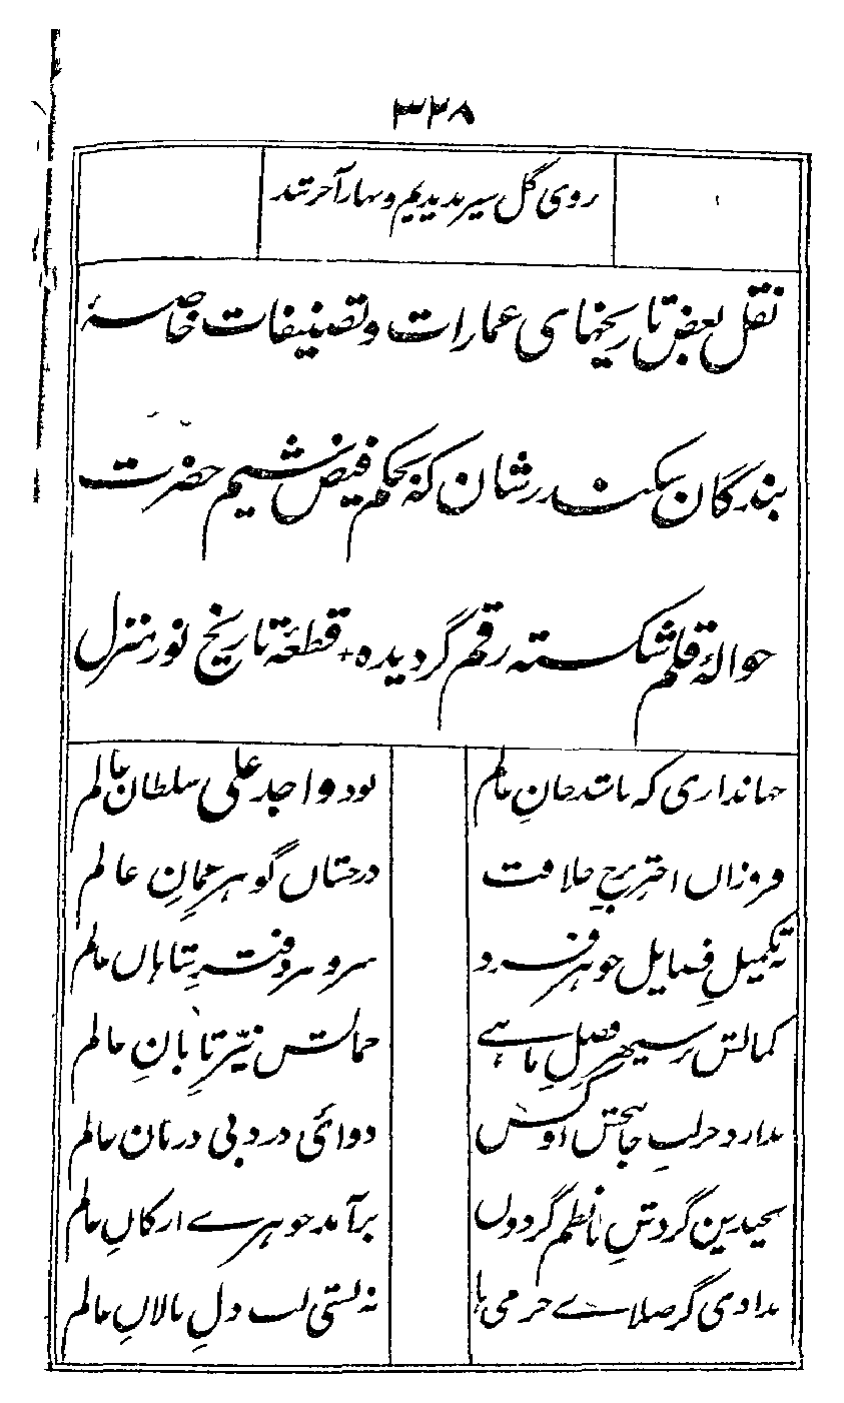 ۳۲۸
روی گل سیر ندیدیم و بهار آخر شد
نقل بعض تاریخهای عمارات و تصنیفات خاصهٔ
بندگان سکندر شان که بحکم فیض شیم حضرت
حوالهٔ قلم شکسته رقم گردیده + قطعهٔ تاریخ نور منزل
جهانداری که باشد جانِ عالم بود واجد علی سلطان عالم
فروزاں اختر برجِ خلافت درخشاں گوهر عمانِ عالم
تکمیلِ فضایل جوهر فرد سر و سر دفتر شاہاں عالم
کمالش بر سپهر فضل ماہے جمالش نیّر تابانِ عالم
ندارد جز لبِ جاں بخش دوائی درد بی درمان عالم
گردشِ گردوں برآمد جوهرے ارکانِ عالم
ندادی گر صلاے خرمی با نه بستی لب دلِ نالانِ عالم